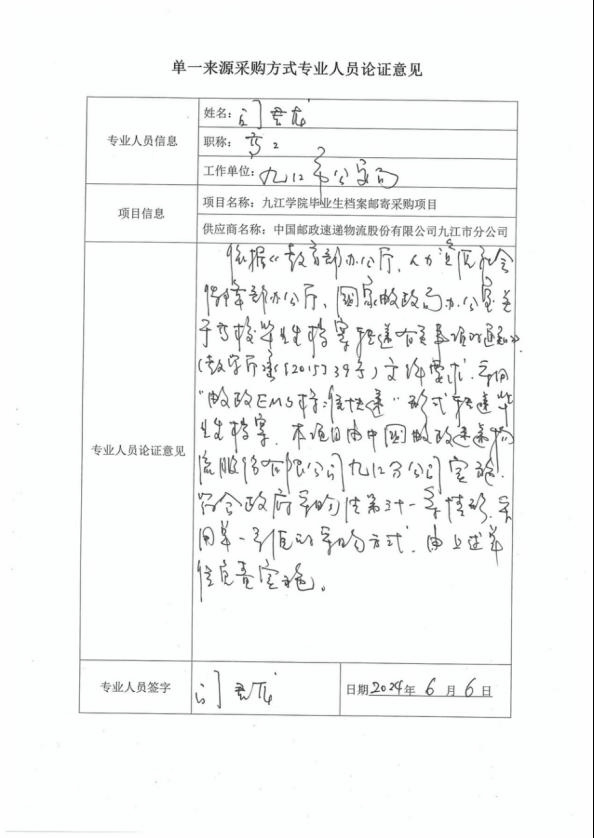 单一来源采购方式专业人员论证意见
专业人员信息
姓名：
职称：高工
工作单位：九江市公安局
项目信息
项目名称：九江学院毕业生档案邮寄采购项目
供应商名称：中国邮政速递物流股份有限公司九江市分公司
专业人员论证意见
依据《教育部办公厅、人力资源社会
保障部办公厅、国家邮政局办公室关
于高校毕业生档案转递有关事项的通知》
（教学厅函〔2015〕39号）文件要求，采用
“邮政EMS标准快递”形式转递毕业
生档案。本项目由中国邮政速递物
流股份有限公司九江分公司实施，
符合政府采购法第三十一条情形，采
用单一来源的采购方式，由上述单
位负责实施。
专业人员签字
日期2024年6月6日